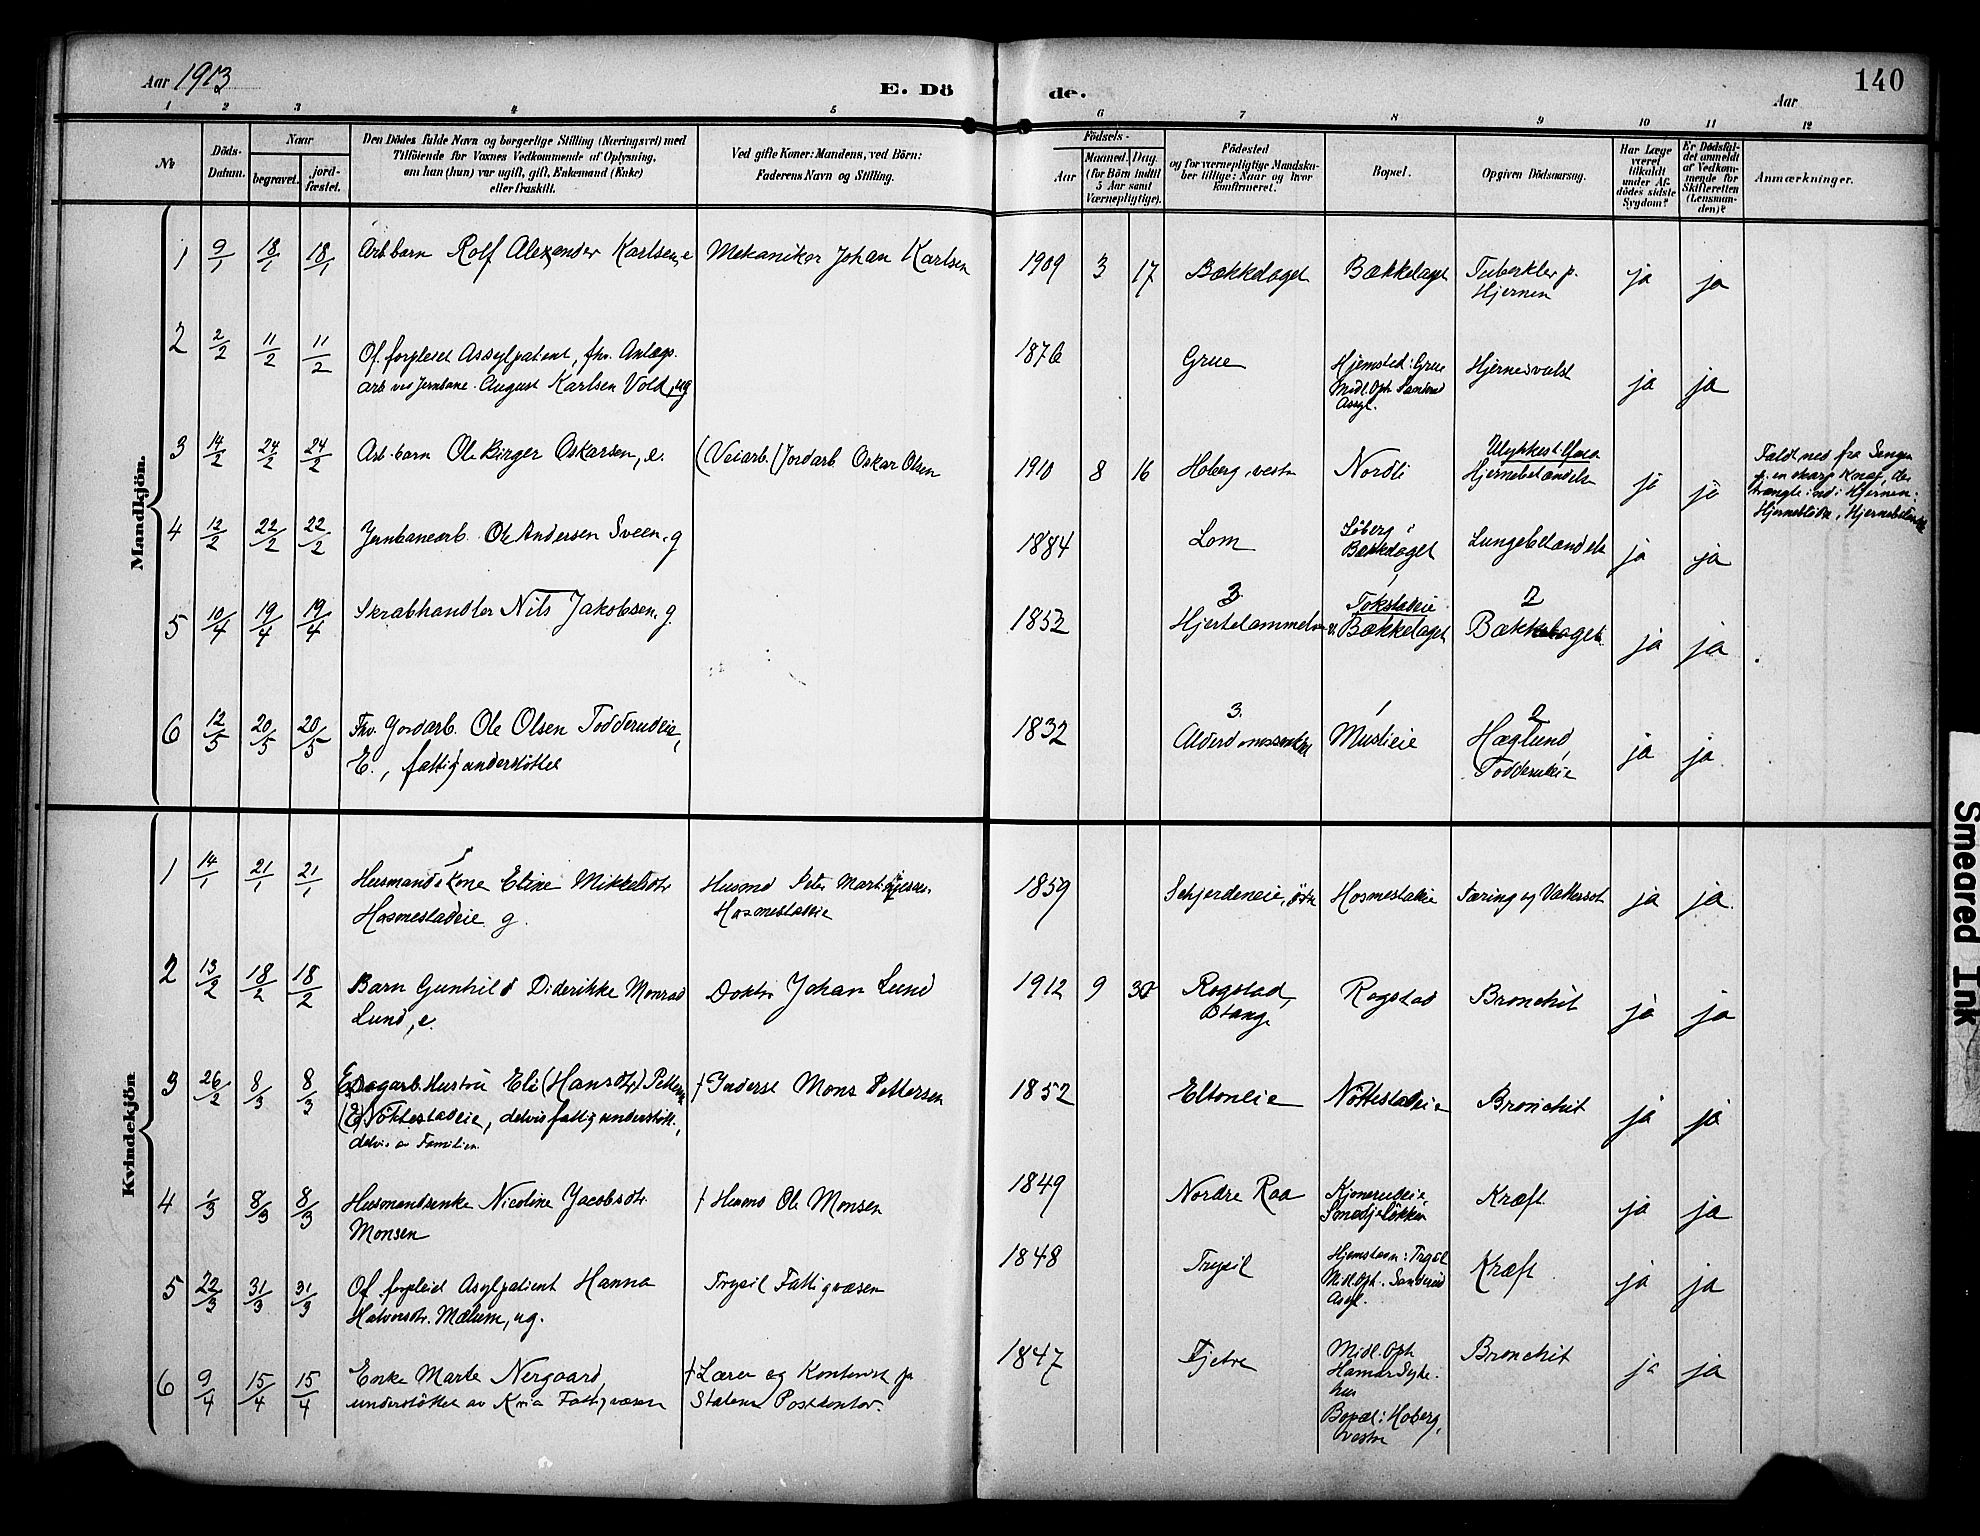 Aar 1913
E. Dö
de.
Aar
140
1 2 3 4 5 6 7 8 9 10 11 12
№
Döds-
Datum.
Naar
begravet.
jord-
fæstet.
Den Dödes fulde Navn og borgerlige Stilling (Næringsvei) med
Tilföiende for Voxnes Vedkommende af Oplysning,
om han (hun) var ugift, gift, Enkemand (Enke)
eller fraskilt.
Ved gifte Koner: Mandens, ved Börn:
Faderens Navn og Stilling.
Födsels-
Aar
Maaned. Dag.
(for Börn indtil
5 Aar samt
Værnepligtige).
Födested
og for værnepligtige Mandska-
ber tillige: Naar og hvor
konfirmeret.
Bopæl.
Opgiven Dödsaarsag.
Har Læge
været
tilkaldt
under Af-
dödes sidste
Sygdom?
Er Dödsfal-
det anmeldt
af Vedkom-
mende for
Skifteretten
(Lensman-
den)?
Anmærkninger.
Mandkjön.
1 9/1 18/1 18/1 Arb.barn Rolf Alexander Karlsen, e Mekaniker Johan Karlsen 1909 3 17 Bækkelaget Bækkelaget Tuberkler p. ja ja
Hjernen
2 2/2 11/2 11/2 Of. forpleiet Asylpatient, fhv. Anlægs- 1876 Grue Hjemsted: Grue Hjernesvulst ja ja
arb ved Jernbane August Karlsen Vold, ug Midl. Oph. Sanderud
Assyl.
3 14/2 24/2 24/2 Arb.barn Ole Birger Oskarsen, e. (Veiarb.) Jordarb Oskar Olsen 1910 8 16 Hoberg, vestr Nordli Hjernebetændelse ja ja
Faldt ned fra Sengen
p. en skarp Knag, der
trængte ind i Hjernen:
4 12/2 22/2 22/2 Jernbanearb. Ole Andersen Sveen, g 1884 Lom Bækkelaget Lungebetændelse ja ja
5 10/4 19/4 19/4 Skrabhandler Nils Jakobsen, g. 1853 3. Hjertelammelse 1 Tokstadeie Bækkelaget 2 Bækkelaget ja ja
6 12/5 20/5 20/5 Fhv. Jordarb. Ole Olsen Todderudeie, 1832 3. 1 Muslieie 2 Hæglund, ja ja
E., fattigunderstöttet Todderudeie
Kvindekjön
1 14/1 21/1 21/1 Husmandskone Eline Mikkelsdtr Husmd Peter 1859 Skjerdeneie, östr Hosmestadeie Tæring og Vattersot ja ja
Hosmestadeie g. Hosmestadeie
2 13/2 18/2 18/2 Barn Gunhild Diderikke Monrad Doktor Johan Lund 1912 9 30 Rogstad, Rogstad Bronchit ja ja
Lund, e. Stange
3 26/2 8/3 8/3 Hustru Eli (Hansdtr) Petters † Inderst Mons Pettersen 1852 Eltoneie Nöttestadeie Bronchit ja ja
Nöttestadeie, delvis fattigunderstött.,
delvis av Familien
4 1/3 8/3 8/3 Husmandsenke Nicoline Jacobsdtr. † Husmd Ole Monsen 1849 Nordre Raa Kjonerudeie, Kræft. ja ja
Monsen Smedjelökken
5 22/3 31/3 31/3 Of. forpleid Asylpatient Hanna Trysil Fattigvæsen 1848 Trysil Hjemstavn: Trysil Kræft ja ja
Halvorsdtr. Mælum, ug. Midl. Oph. Sanderud
Asyl.
6 9/4 15/4 15/4 Enke Marte Nergaard, † Lærer og Kontorist p. 1847 Tjetre Midl. Oph. Bronchit ja ja
understöttet av Kria Fattigvæsen Statens Postkontor. Hamar Syke-
hus
Bopæl: Hoberg,
vestre
Smeared Ink